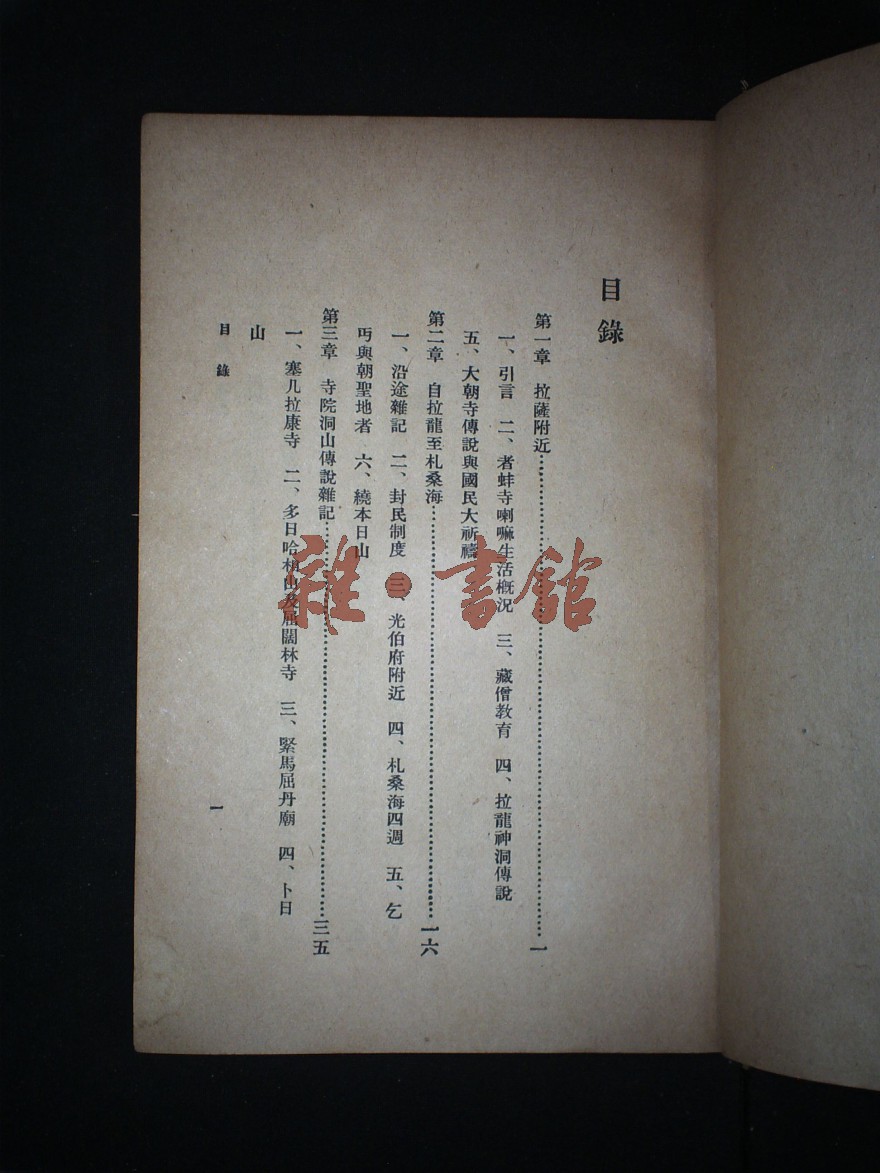 目錄
第一章　拉薩附近⋯⋯⋯⋯⋯⋯⋯⋯⋯⋯一
一、引言　二、者蚌寺喇嘛生活概況　三、藏僧教育　四、拉龍神洞傳說
五、大朝寺傳說與國民大祈禱
第二章　自拉龍至札桑海⋯⋯⋯⋯⋯⋯⋯⋯一六
一、沿途雜記　二、封民制度　三、光伯府附近　四、札桑海四週　五、乞
丐與朝聖地者　六、繞本日山
第三章　寺院洞山傳說雜記⋯⋯⋯⋯⋯⋯⋯三五
一、塞兒拉康寺　二、多日哈山及屈闊林寺　三、緊馬屈丹廟　四、卜日
山
目錄
一
雜·書館